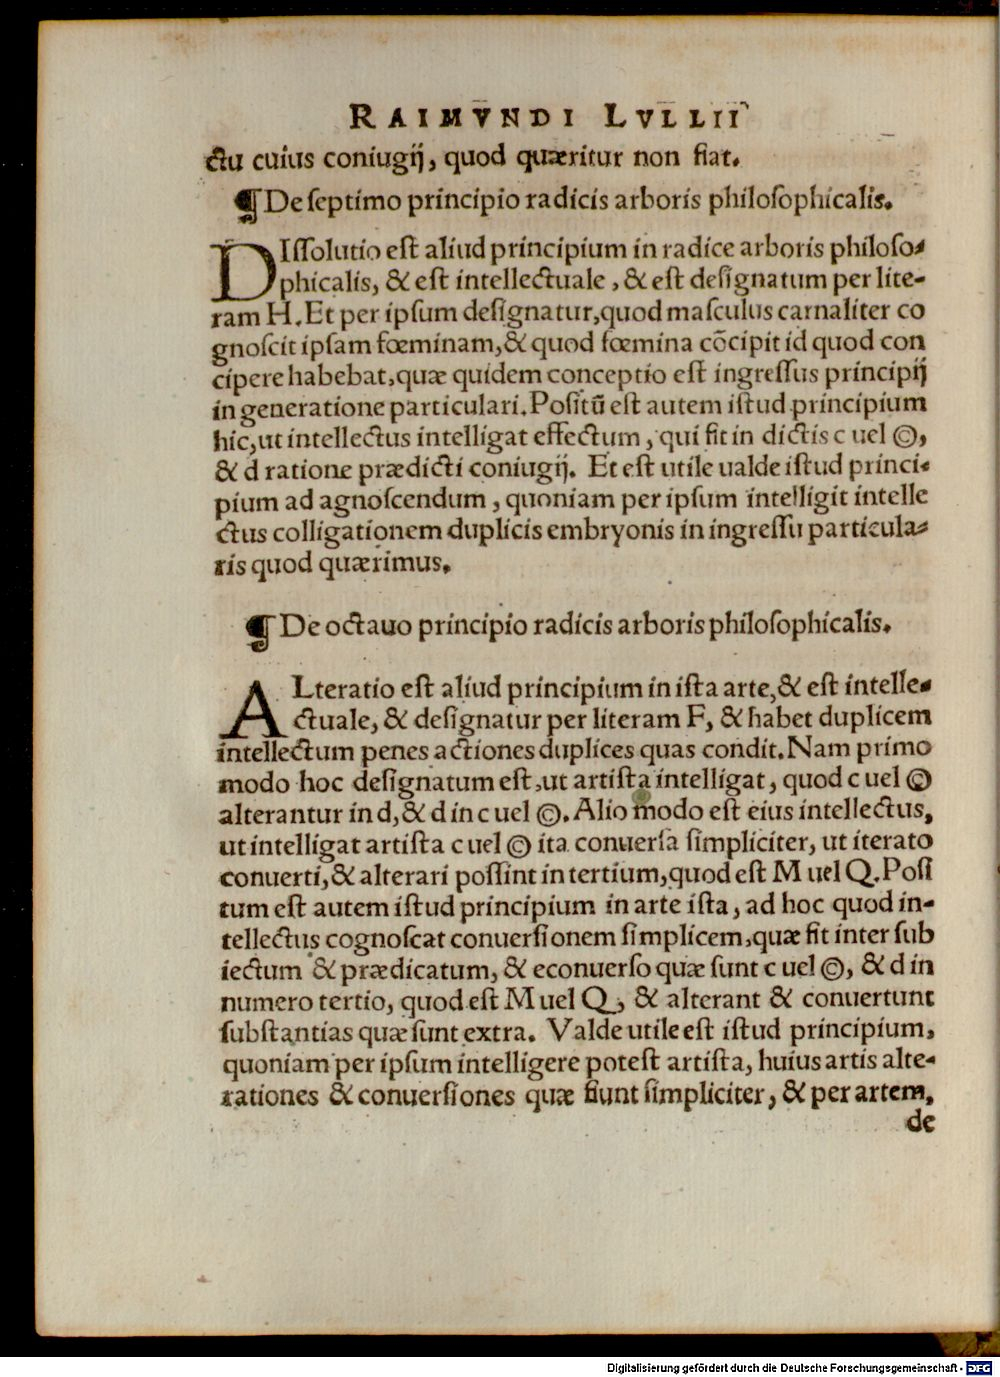 RAIMVNDI LVLLII
ctu cuius coniugij, quod quæritur non fiat.
¶ De ſeptimo principio radicis arboris philoſophicalis.
DIſſolutio eſt aliud principium in radice arboris philoſo-
phicalis, & eſt intellectuale, & eſt deſignatum per lite-
ram H. Et per ipſum deſignatur, quod maſculus carnaliter co
gnoſcit ipſam fœminam, & quod fœmina cõcipit id quod con
cipere habebat, quæ quidem conceptio eſt ingreſſus principij
in generatione particulari. Poſitũ eſt autem iſtud principium
hic, ut intellectus intelligat effectum, qui fit in dictis c uel ©,
& d ratione prædicti coniugij. Et eſt utile ualde iſtud princi-
pium ad agnoſcendum, quoniam per ipſum intelligit intelle
ctus colligationem duplicis embryonis in ingreſſu particula-
ris quod quærimus.
¶ De octauo principio radicis arboris philoſophicalis.
ALteratio eſt aliud principium in iſta arte, & eſt intelle-
ctuale, & deſignatur per literam F, & habet duplicem
intellectum penes actiones duplices quas condit. Nam primo
modo hoc deſignatum eſt, ut artiſta intelligat, quod c uel ©
alterantur in d, & d in c uel ©. Alio modo eſt eius intellectus,
ut intelligat artiſta c uel © ita conuerſa ſimpliciter, ut iterato
conuerti, & alterari poſſint in tertium, quod eſt M uel Q. Poſi
tum eſt autem iſtud principium in arte iſta, ad hoc quod in-
tellectus cognoſcat conuerſionem ſimplicem, quæ fit inter ſub
iectum & prædicatum, & econuerſo quæ ſunt c uel ©, & d in
numero tertio, quod eſt M uel Q, & alterant & conuertunt
ſubſtantias quæ ſunt extra. Valde utile eſt iſtud principium,
quoniam per ipſum intelligere poteſt artiſta, huius artis alte-
rationes & conuerſiones quæ fiunt ſimpliciter, & per artem,
de
Digitalisierung gefördert durch die Deutsche Forschungsgemeinschaft - DFG